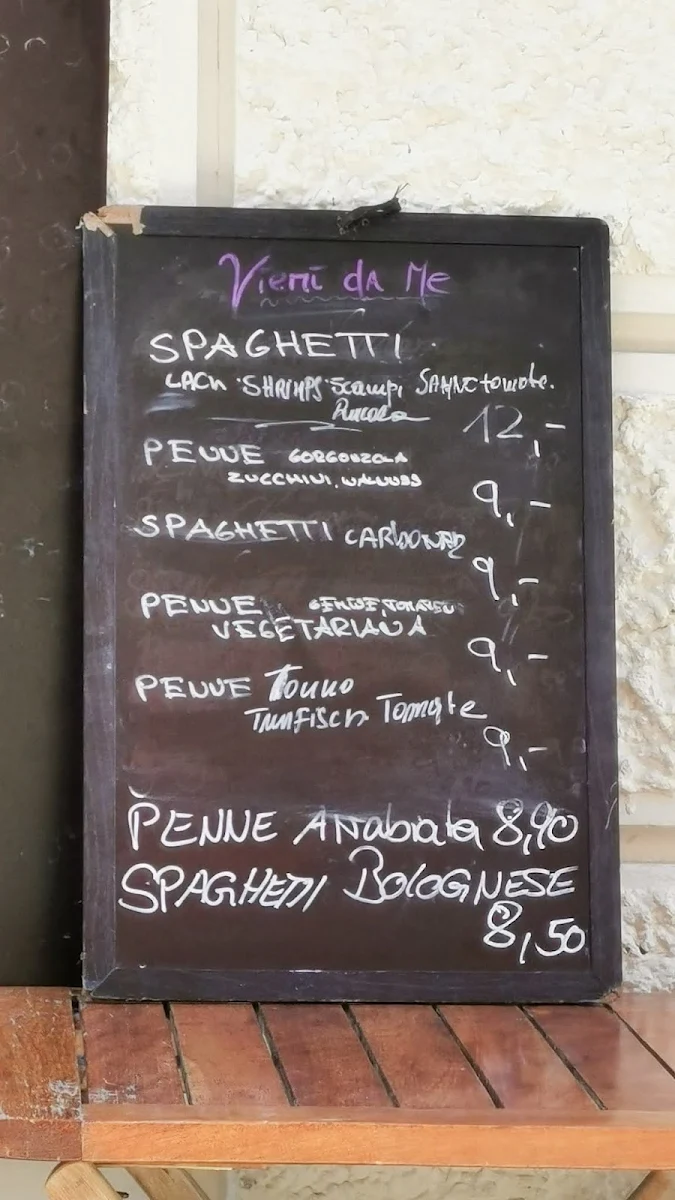 Vieni da Me
SPAGHETTI
LACH SHRIMPS Scampi SAHNE tomate.
Rucola
12,-
PENNE GORGONZOLA
ZUCCHINI, WALNUSS
9,-
SPAGHETTI CARBONARA
9,-
PENNE GEMÜSE, TOMATEN
VEGETARIANA
9,-
PENNE Tonno
Tunfisch Tomate
9,-
PENNE Arrabiata 8,90
SPAGHETTI BOLOGNESE
8,50